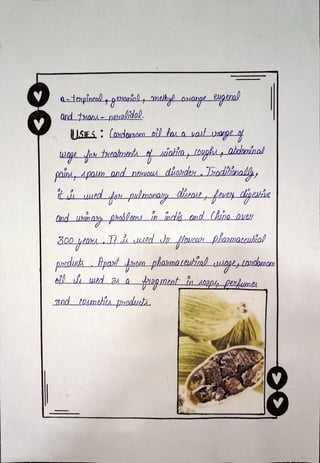 α-terpineol, geraniol, methyl eugenol
and trans-nerolidol.
USES: Cardamom oil has a vast range of
usage for treatments of sciatia, coughs, abdominal
pain, spasm and nervous disorder. Traditionally,
it is used for pulmonary disease, fever, digestive
and urinary problems in india and China over
300 years. It is used to flavour pharmaceutial
products. Apart from pharmaceutrial usage, cardamom
oil is used as a fragment in soaps, perfumes
and cosmetics products.